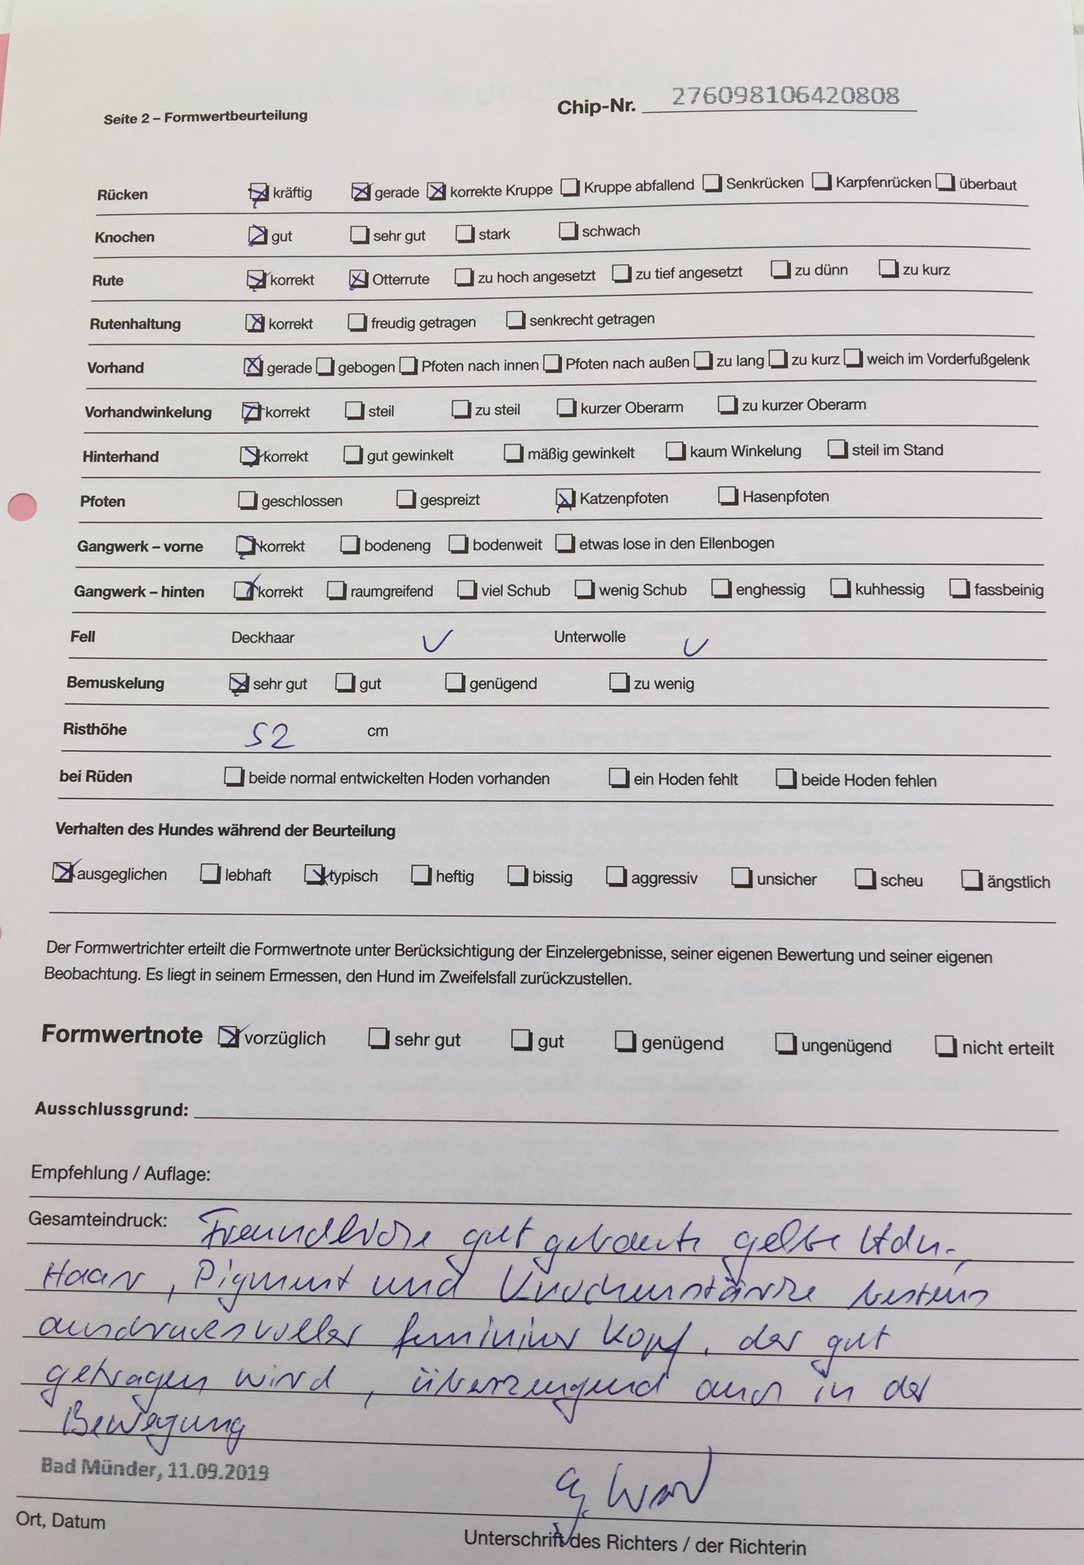 Seite 2 – Formwertbeurteilung Chip-Nr. 276098106420808
Rücken ☒ kräftig ☒ gerade ☒ korrekte Kruppe ☐ Kruppe abfallend ☐ Senkrücken ☐ Karpfenrücken ☐ überbaut
Knochen ☒ gut ☐ sehr gut ☐ stark ☐ schwach
Rute ☒ korrekt ☒ Otterrute ☐ zu hoch angesetzt ☐ zu tief angesetzt ☐ zu dünn ☐ zu kurz
Rutenhaltung ☒ korrekt ☐ freudig getragen ☐ senkrecht getragen
Vorhand ☒ gerade ☐ gebogen ☐ Pfoten nach innen ☐ Pfoten nach außen ☐ zu lang ☐ zu kurz ☐ weich im Vorderfußgelenk
Vorhandwinkelung ☒ korrekt ☐ steil ☐ zu steil ☐ kurzer Oberarm ☐ zu kurzer Oberarm
Hinterhand ☒ korrekt ☐ gut gewinkelt ☐ mäßig gewinkelt ☐ kaum Winkelung ☐ steil im Stand
Pfoten ☐ geschlossen ☐ gespreizt ☒ Katzenpfoten ☐ Hasenpfoten
Gangwerk – vorne ☒ korrekt ☐ bodeneng ☐ bodenweit ☐ etwas lose in den Ellenbogen
Gangwerk – hinten ☒ korrekt ☐ raumgreifend ☐ viel Schub ☐ wenig Schub ☐ enghessig ☐ kuhhessig ☐ fassbeinig
Fell Deckhaar ✓ Unterwolle ✓
Bemuskelung ☒ sehr gut ☐ gut ☐ genügend ☐ zu wenig
Risthöhe 52 cm
bei Rüden ☐ beide normal entwickelten Hoden vorhanden ☐ ein Hoden fehlt ☐ beide Hoden fehlen
Verhalten des Hundes während der Beurteilung
☒ ausgeglichen ☐ lebhaft ☒ typisch ☐ heftig ☐ bissig ☐ aggressiv ☐ unsicher ☐ scheu ☐ ängstlich
Der Formwertrichter erteilt die Formwertnote unter Berücksichtigung der Einzelergebnisse, seiner eigenen Bewertung und seiner eigenen
Beobachtung. Es liegt in seinem Ermessen, den Hund im Zweifelsfall zurückzustellen.
Formwertnote ☒ vorzüglich ☐ sehr gut ☐ gut ☐ genügend ☐ ungenügend ☐ nicht erteilt
Ausschlussgrund:
Empfehlung / Auflage:
Gesamteindruck: Freundliche gut gebaute gelbe Hdn.
Haar, Pigment und Knochenstärke bestens
ausdrucksvoller femininer Kopf, der gut
getragen wird, überzeugend auch in der
Bewegung
Bad Münder, 11.09.2019
Ort, Datum
Unterschrift des Richters / der Richterin